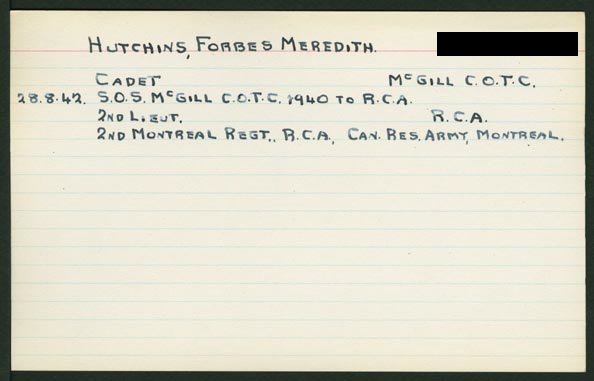 HUTCHINS, FORBES MEREDITH.
CADET McGILL C.O.T.C.
28.8.42. S.O.S. McGILL C.O.T.C. 1940 TO R.C.A.
2ND LIEUT. R.C.A.
2ND MONTREAL REGT., R.C.A., CAN. RES. ARMY, MONTREAL.